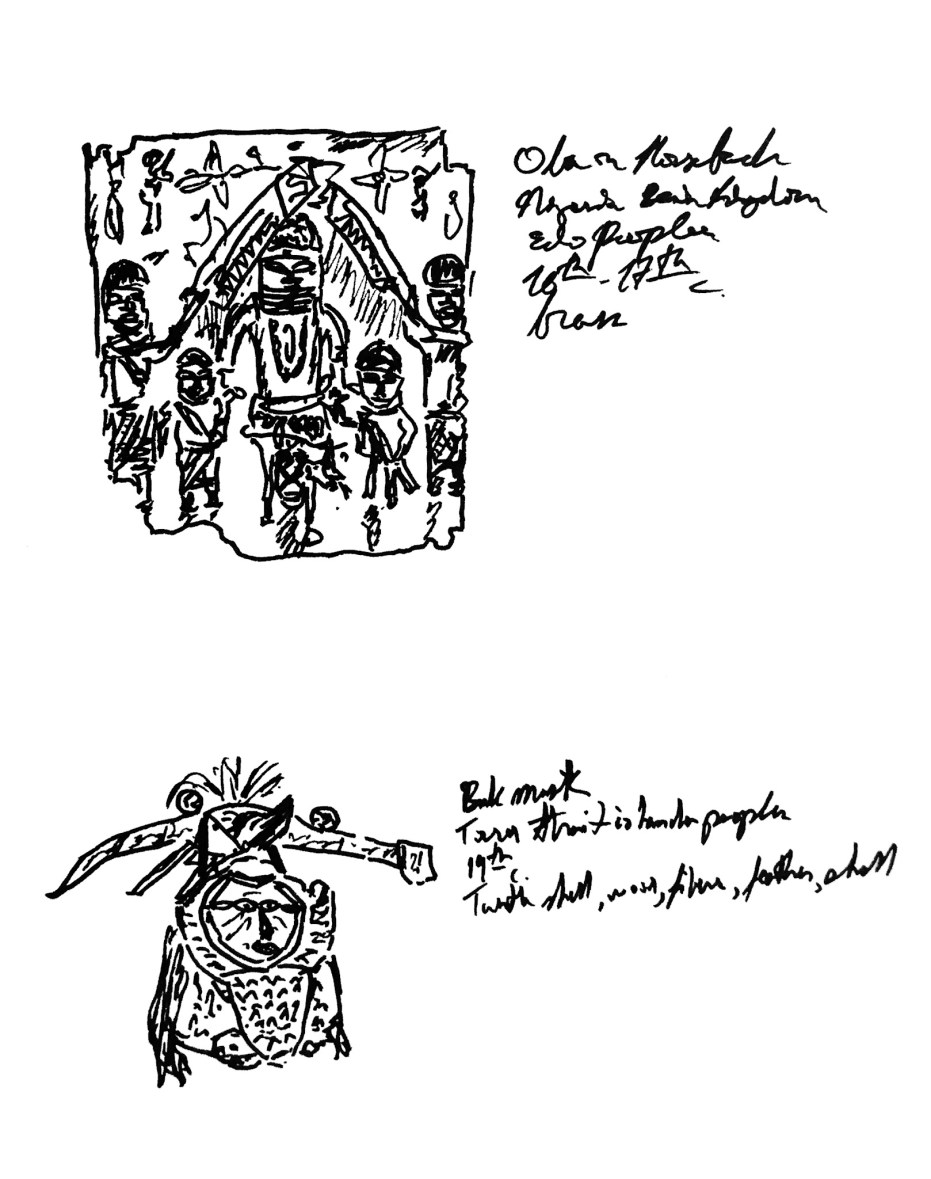 Oba on Horseback
Nigeria Benin Kingdom
Edo Peoples
16th-17th c.
brass
Buk mask
Torres Strait islander peoples
19th c.
Turtle shell, wood, fiber, feather, shell